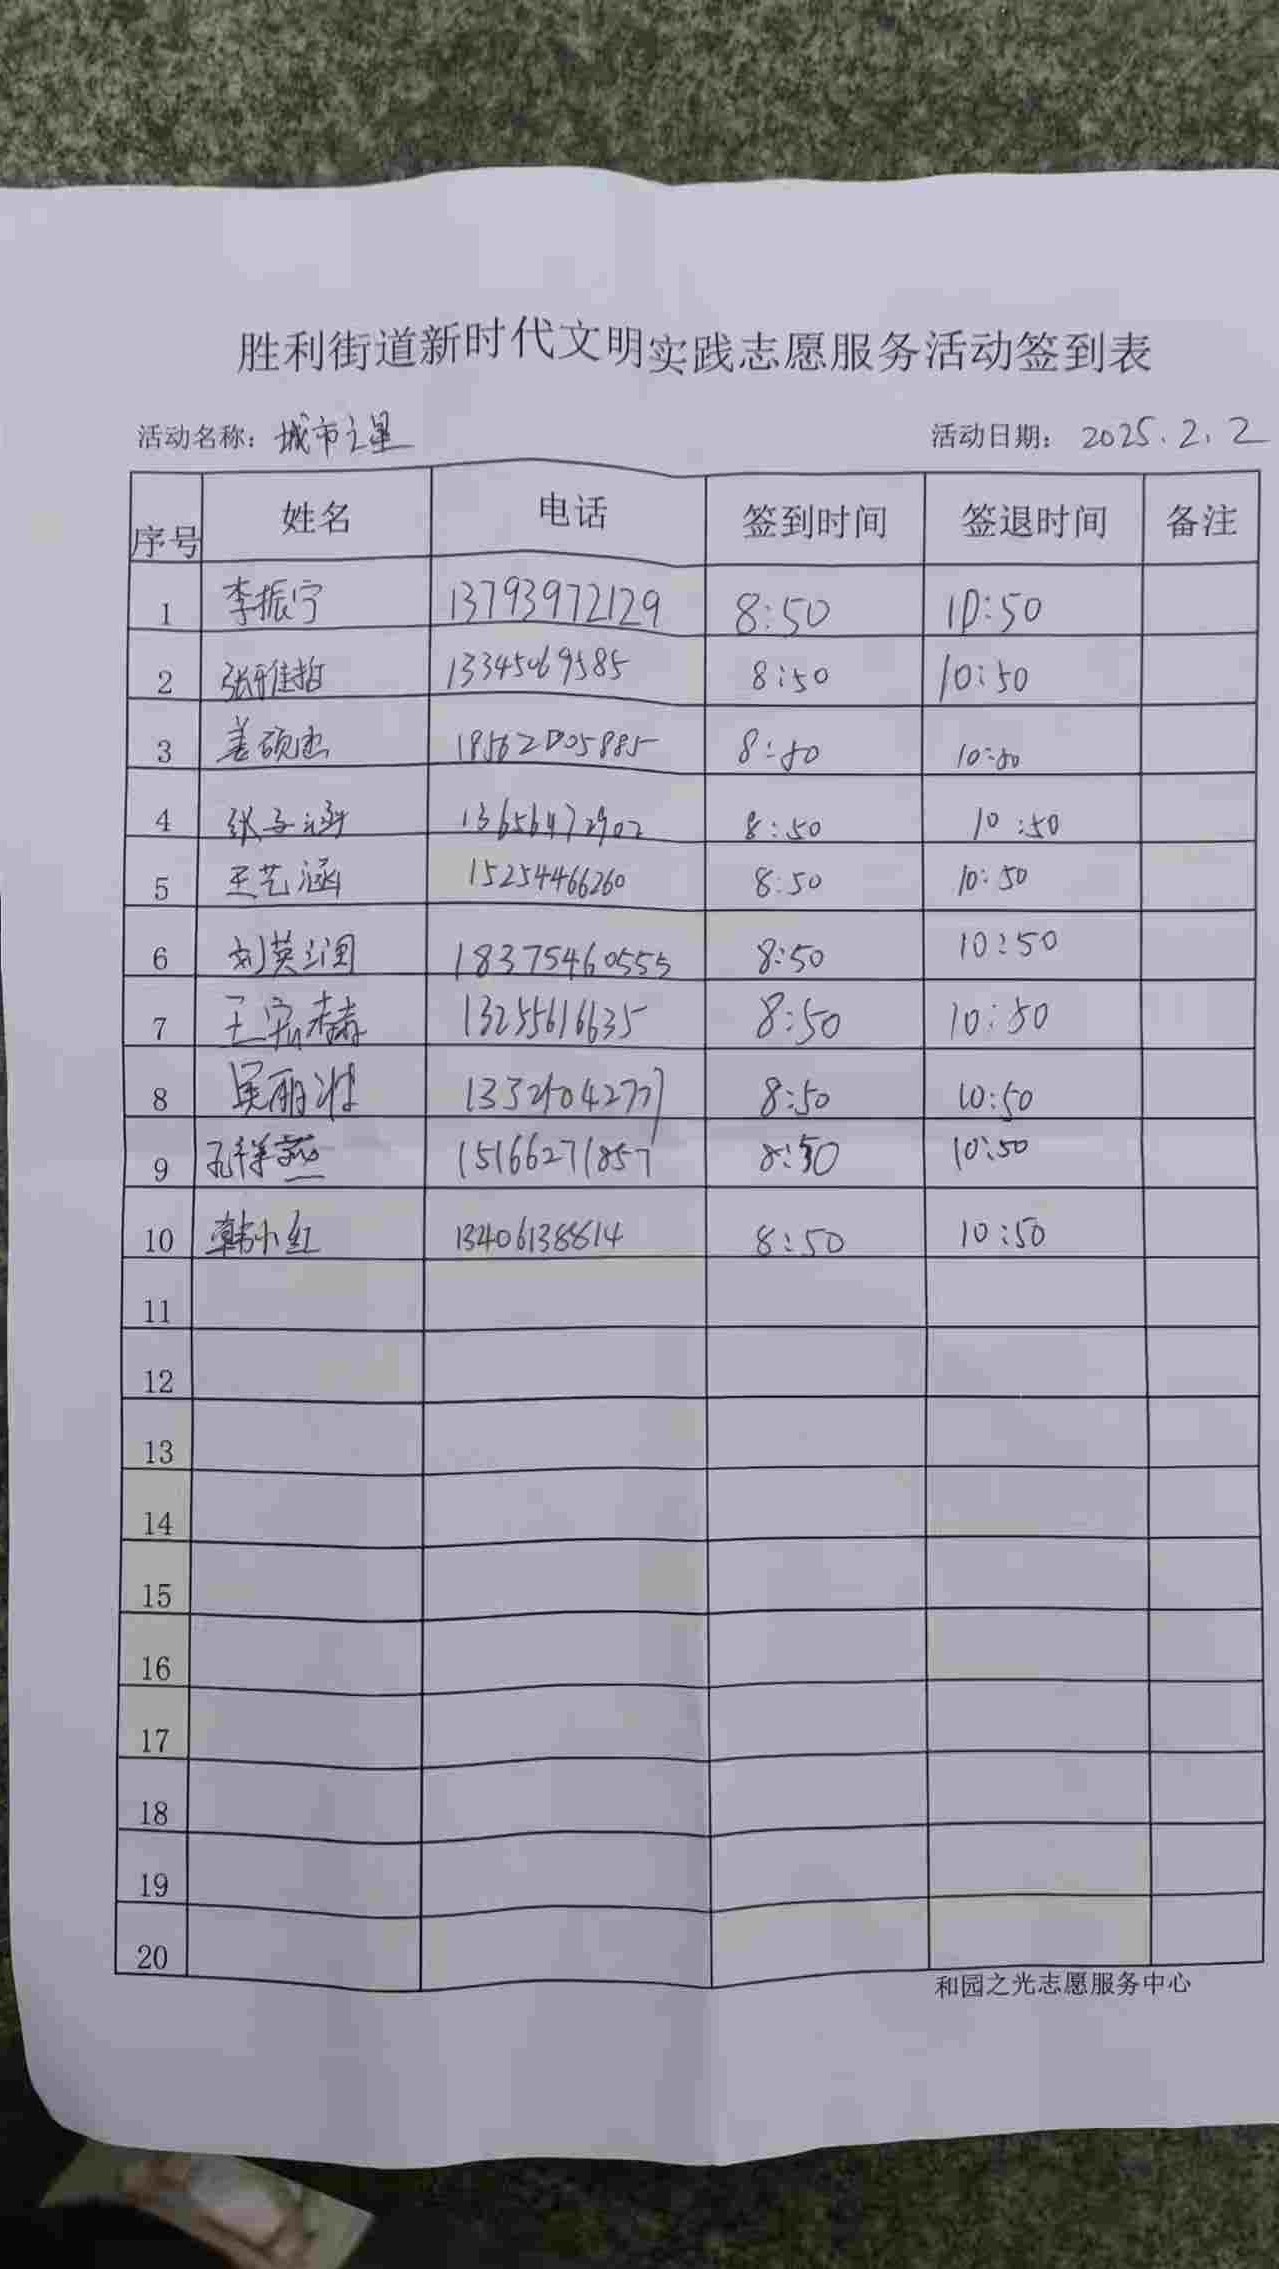 胜利街道新时代文明实践志愿服务活动签到表
活动名称：城市之星 活动日期：2025.2.2
序号 姓名 电话 签到时间 签退时间 备注
1 李振宁 13793972129 8:50 10:50
2 张雅哲 13345069585 8:50 10:50
3 姜硕杰 18562005885 8:50 10:50
4 张子涵 13656472902 8:50 10:50
5 王艺涵 15254466260 8:50 10:50
6 刘英润 18375460555 8:50 10:50
7 王宏赫 13255616635 8:50 10:50
8 吴丽 8:50 10:50
9 孔祥燕 15166271857 8:50 10:50
10 韩小红 13406138814 8:50 10:50
11
12
13
14
15
16
17
18
19
20
和园之光志愿服务中心